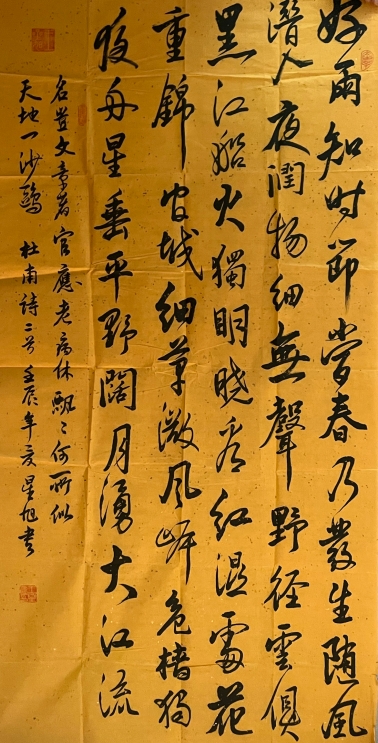 好雨知时節當春乃發生随風
潛入夜潤物细無聲野径雲俱
黑江船火獨明曉看紅濕處花
重錦官城细草微風岸危檣獨
夜舟星垂平野闊月湧大江流
名豈文章著官應老病休飄〻何所似
天地一沙鷗 杜甫诗二首 壬辰年夏星旭书